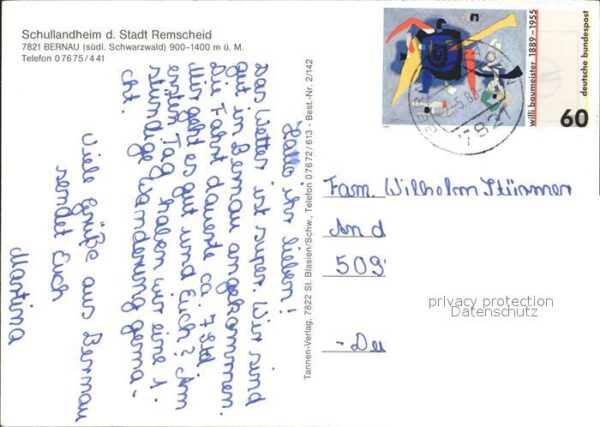 Schullandheim d. Stadt Remscheid
7821 BERNAU (südl. Schwarzwald) 900–1400 m ü. M.
Telefon 07675/441
Hallo ihr lieben!
Das Wetter ist super. Wir sind
gut in Bernau angekommen.
Die Fahrt dauerte ca. 7 Std.
Mir geht es gut und Euch? Am
ersten Tag haben wir eine 1-
stündige Wanderung gema-
cht.
Viele Grüße aus Bernau
sendet Euch
Martina
Tannen-Verlag, 7822 St. Blasien/Schw., Telefon 07672/613 - Best.-Nr. 2/142
willi baumeister 1889-1955
deutsche bundespost
60
7821
Fam. Wilhelm Stürmer
An d
509
privacy protection
Datenschutz